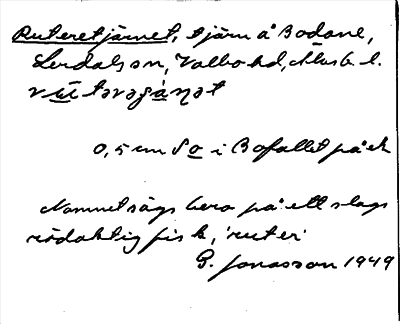 Ruteretjärnet, tjärn å Bodane,
Lerdalson, Valbo hd, Älvsb. l.
0,5 cm S o i Bofallet på ek
Namnet sägs bero på ett slags
rödaktig fisk, 'ruter'
G. Jonasson 1949